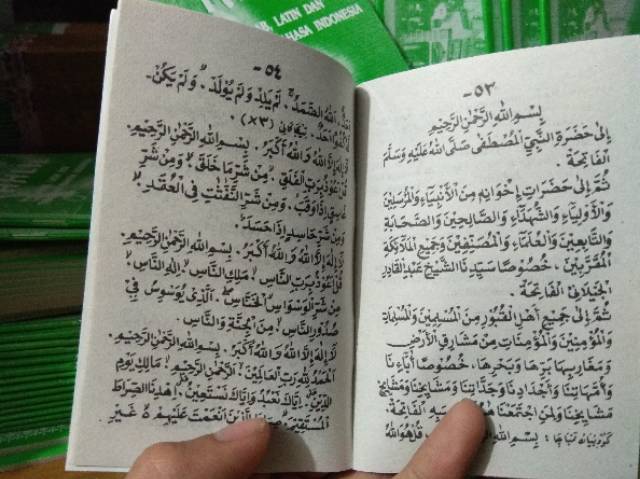 AB, LATIN DAN
HASA INDONESIA
-٥٣-
بِسْمِ اللهِ الرَّحْمٰنِ الرَّحِيْمِ
اِلَى حَضْرَةِ النَّبِيِّ الْمُصْطَفَى صَلَّى اللهُ عَلَيْهِ وَسَلَّمَ
اَلْفَاتِحَةَ .
ثُمَّ اِلَى حَضَرَاتِ اِخْوَانِهِ مِنَ الْأَنْبِيَاءِ وَالْمُرْسَلِيْنَ
وَالْأَوْلِيَاءِ وَالشُّهَدَاءِ وَالصَّالِحِيْنَ وَالصَّحَابَةِ
وَالتَّابِعِيْنَ وَالْعُلَمَاءِ وَالْمُصَنِّفِيْنَ وَجَمِيْعِ الْمَلَائِكَةِ
الْمُقَرَّبِيْنَ ، خُصُوْصًا سَيِّدِنَا الشَّيْخِ عَبْدِ الْقَادِرِ
الْجَيْلَانِي الْفَاتِحَةَ .
ثُمَّ اِلَى جَمِيْعِ أَهْلِ الْقُبُوْرِ مِنَ الْمُسْلِمِيْنَ وَالْمُسْلِمَاتِ
وَالْمُؤْمِنِيْنَ وَالْمُؤْمِنَاتِ مِنْ مَشَارِقِ الْأَرْضِ
وَمَغَارِبِهَا بَرِّهَا وَبَحْرِهَا ، خُصُوْصًا أٰبَاءَنَا
وَأُمَّهَاتِنَا وَأَجْدَادِنَا وَجَدَّاتِنَا وَمَشَايِخِنَا وَمَشَايِخِ
مَشَايِخِنَا وَلِمَنِ اجْتَمَعْنَا الْفَاتِحَةَ .
بِسْمِ اللهِ قُلْ هُوَ اللهُ
-٥٤-
اَحَدٌ . اَللهُ الصَّمَدُ . لَمْ يَلِدْ وَلَمْ يُوْلَدْ . وَلَمْ يَكُنْ
لَهُ كُفُوًا اَحَدٌ . (×٣)
لَا اِلٰهَ اِلَّا اللهُ وَاللهُ أَكْبَرُ . بِسْمِ اللهِ الرَّحْمٰنِ الرَّحِيْمِ .
قُلْ اَعُوْذُ بِرَبِّ الْفَلَقِ . مِنْ شَرِّ مَا خَلَقَ . وَمِنْ شَرِّ
غَاسِقٍ اِذَا وَقَبَ . وَمِنْ شَرِّ النَّفّٰثٰتِ فِى الْعُقَدِ .
وَمِنْ شَرِّ حَاسِدٍ اِذَا حَسَدَ .
لَا اِلٰهَ اِلَّا اللهُ وَاللهُ أَكْبَرُ . بِسْمِ اللهِ الرَّحْمٰنِ الرَّحِيْمِ .
قُلْ اَعُوْذُ بِرَبِّ النَّاسِ . مَلِكِ النَّاسِ . اِلٰهِ النَّاسِ .
مِنْ شَرِّ الْوَسْوَاسِ الْخَنَّاسِ . اَلَّذِيْ يُوَسْوِسُ فِيْ
صُدُوْرِ النَّاسِ . مِنَ الْجِنَّةِ وَالنَّاسِ .
لَا اِلٰهَ اِلَّا اللهُ وَاللهُ أَكْبَرُ . بِسْمِ اللهِ الرَّحْمٰنِ الرَّحِيْمِ .
اَلْحَمْدُ لِلّٰهِ رَبِّ الْعَالَمِيْنَ . اَلرَّحْمٰنِ الرَّحِيْمِ . مَالِكِ يَوْمِ
الدِّيْنِ . اِيَّاكَ نَعْبُدُ وَاِيَّاكَ نَسْتَعِيْنُ . اِهْدِنَا الصِّرَاطَ
الْمُسْتَقِيْمَ . صِرَاطَ الَّذِيْنَ اَنْعَمْتَ عَلَيْهِمْ غَيْرِ